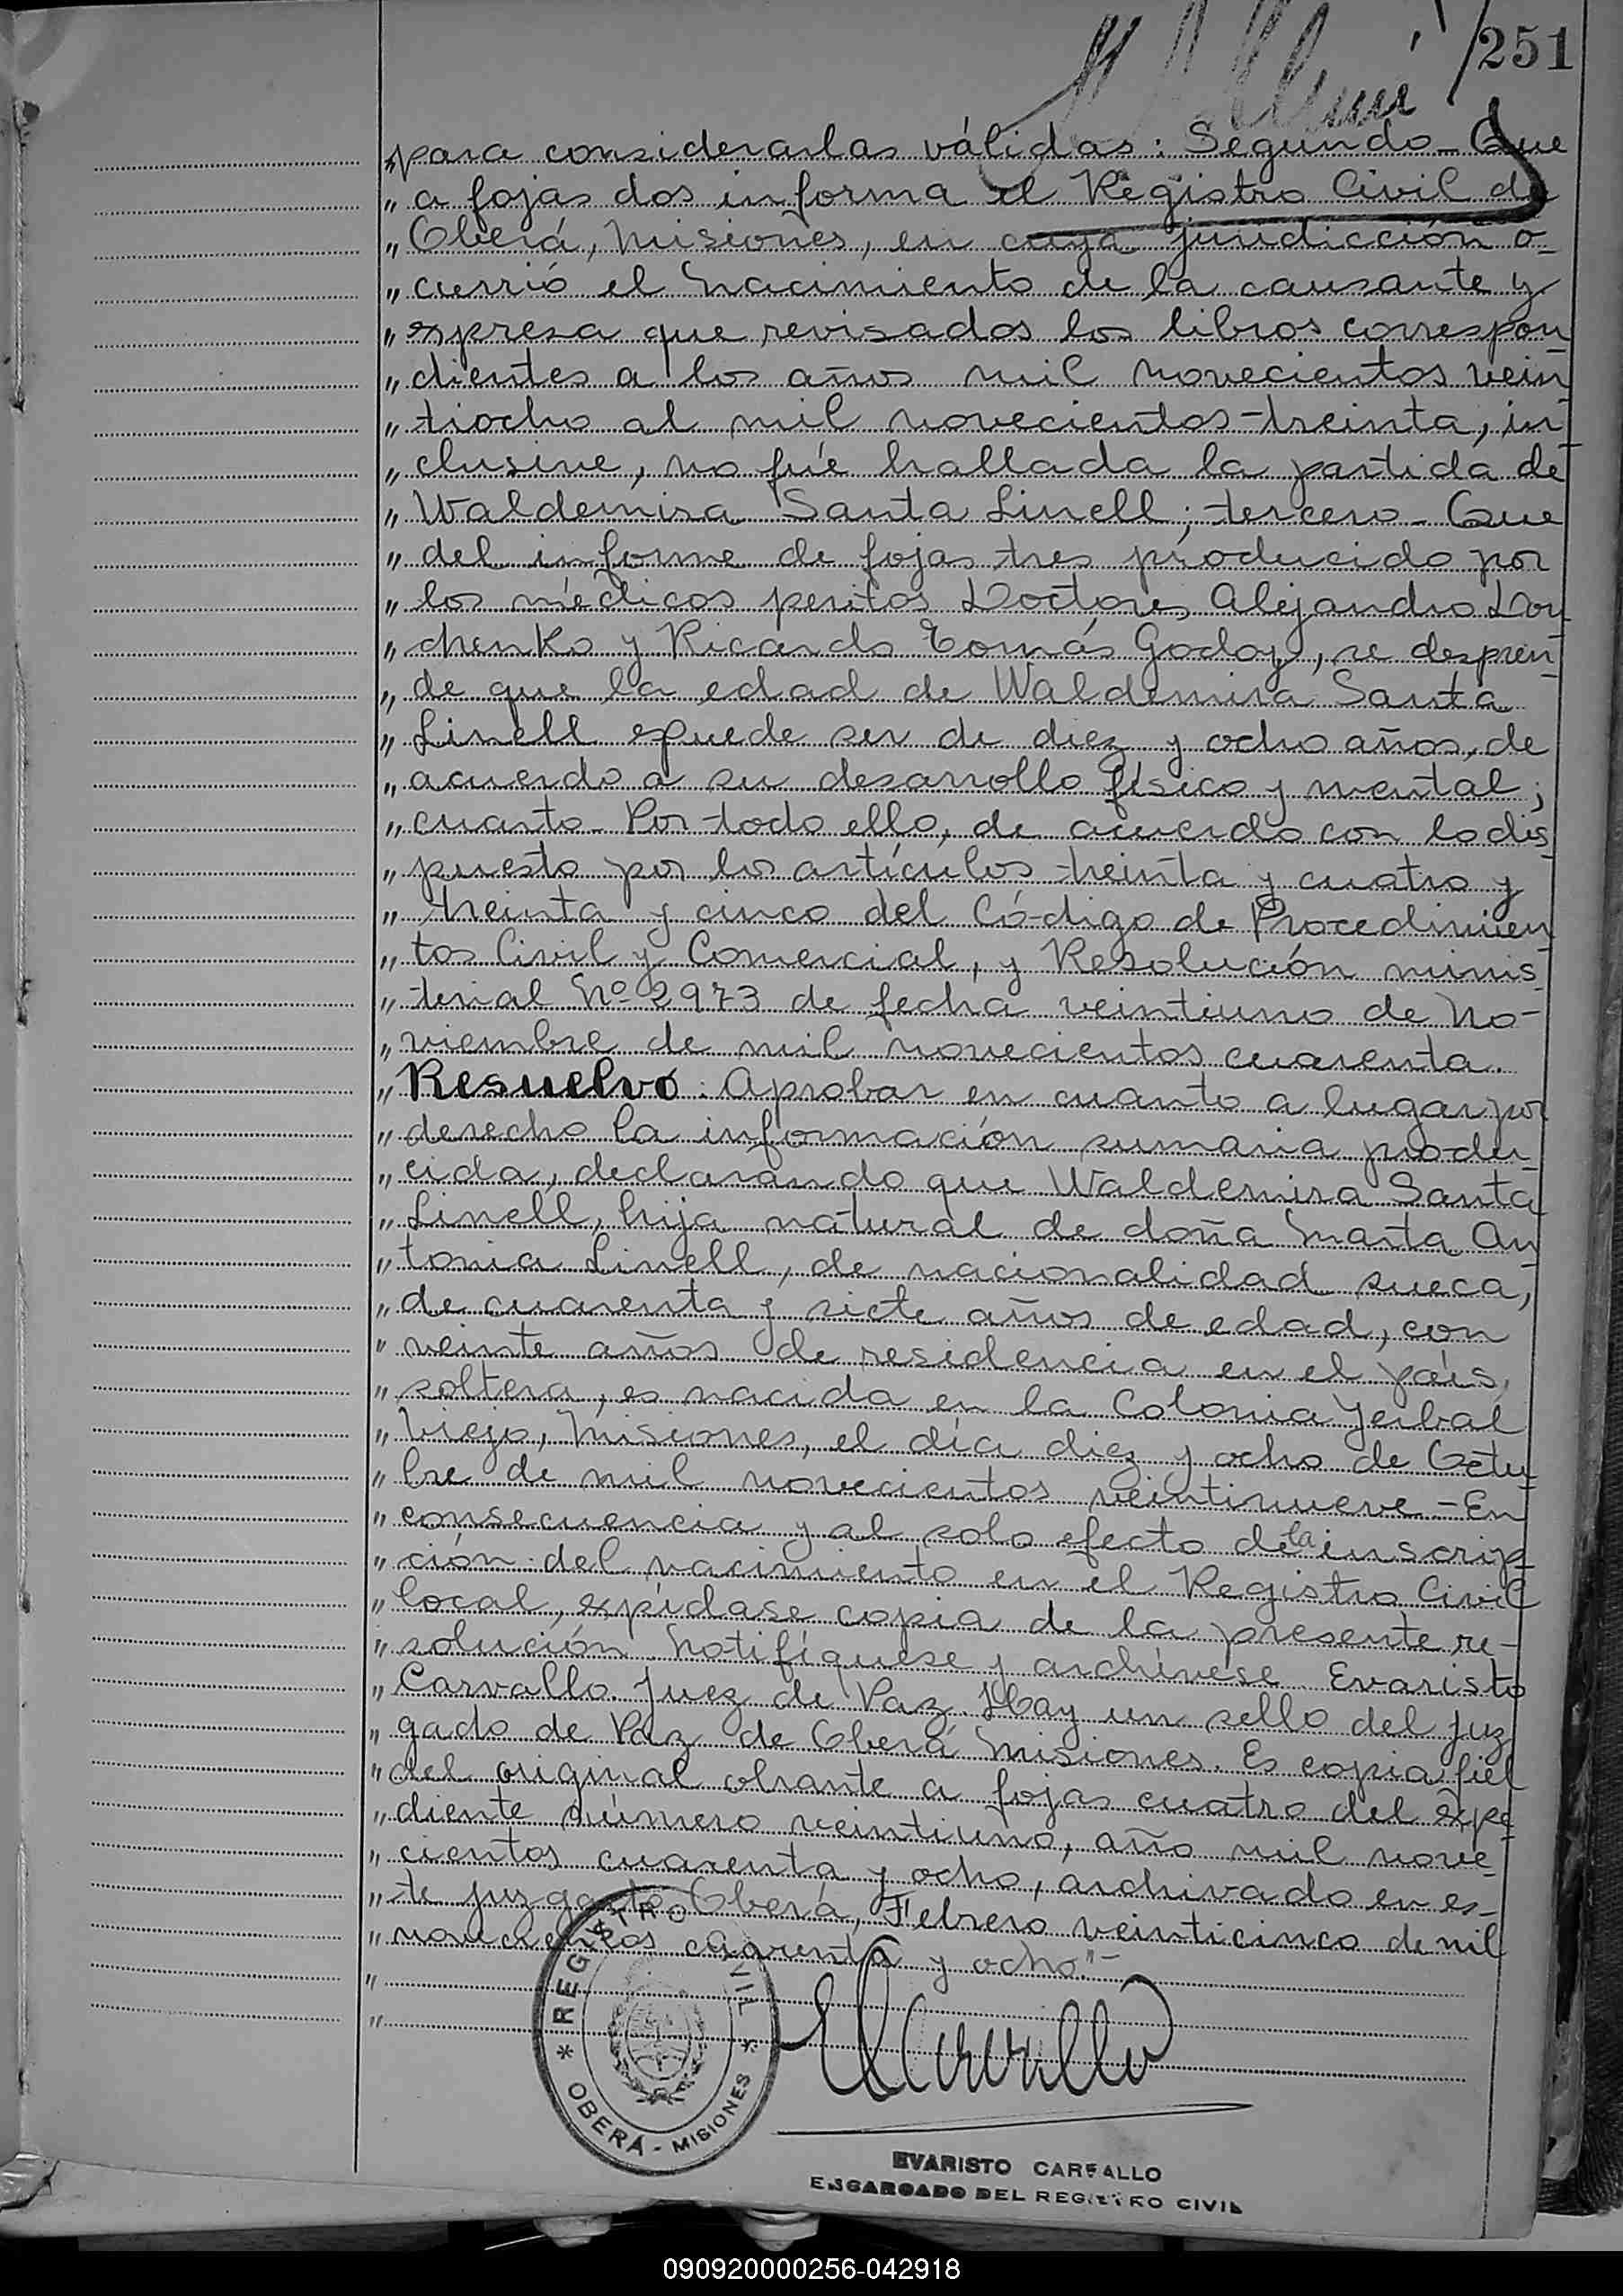 251
„para considerarlas válidas: Segundo_ Que
„ a fojas dos informa el Registro Civil de
„ Oberá, Misiones, en cuya juridicción o-
„ currió el nacimiento de la causante y
„ expresa que revisados los libros correspon
„ dientes a los años mil novecientos vein
„ tiocho al mil novecientos treinta, in
„ clusive, no fué hallada la partida de
„ Waldemira Santa Linell; tercero_ Que
„ del informe de fojas tres producido por
„ los médicos peritos Doctores Alejandro
„ chenko y Ricardo Tomás Godoy, se despren
„ de que la edad de Waldemira Santa
„ Linell puede ser de diez y ocho años, de
„ acuerdo a su desarrollo físico y mental;
„ cuarto_ Por todo ello, de acuerdo con lo dis
„ puesto por los artículos treinta y cuatro y
„ treinta y cinco del Código de Procedimien
„ tos Civil y Comercial, y Resolución minis
„ terial Nº 2973 de fecha veintiuno de No-
„ viembre de mil novecientos cuarenta.
„ Resuelvo: Aprobar en cuanto a lugar por
„ derecho la información sumaria produ
„ cida, declarando que Waldemira Santa
„ Linell, hija natural de doña Marta An
„ tonia Linell, de nacionalidad sueca,
„ de cuarenta y siete años de edad, con
„ veinte años de residencia en el país,
„ soltera, es nacida en la Colonia Yerbal
„ Viejo, Misiones, el día diez y ocho de Octu
„ bre de mil novecientos veintinueve.- En
„ consecuencia y al solo efecto de la inscrip
„ ción del nacimiento en el Registro Civil
„ local, expídase copia de la presente re-
„ solución. Notifíquese y archívese. Evaristo
„ Carvallo. Juez de Paz. Hay un sello del Juz
„ gado de Paz de Oberá Misiones. Es copia fiel
„ del original obrante a fojas cuatro del expe
„ diente número veintiuno, año mil nove
„ cientos cuarenta y ocho, archivado en es-
„ te juzgado Oberá, Febrero veinticinco de mil
„ novecientos cuarenta y ocho."-
„
„
* REGISTRO CIVIL *
OBERÁ - MISIONES
ECarvallo
EVARISTO CARVALLO
ENCARGADO DEL REGISTRO CIVIL
090920000256-042918